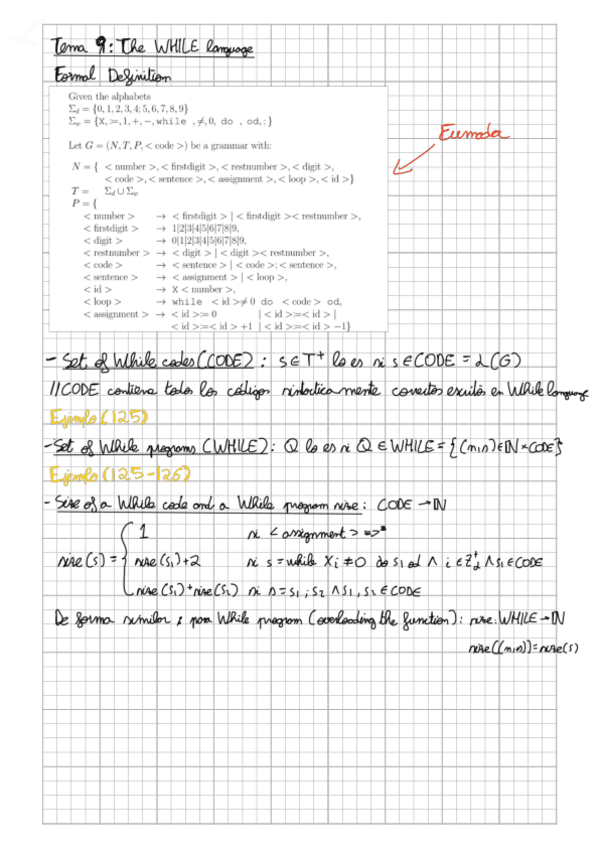 Tema 9: The WHILE language
Formal Definition
Given the alphabets
Σd = {0, 1, 2, 3, 4; 5, 6, 7, 8, 9}
Σw = {X, :=, 1, +, −, while , ≠, 0, do , od, ; }
Let G = (N, T, P, < code >) be a grammar with:
N = { < number >, < firstdigit >, < restnumber >, < digit >,
< code >, < sentence >, < assignment >, < loop >, < id >}
T = Σd ∪ Σw
P = {
< number > → < firstdigit > | < firstdigit >< restnumber >,
< firstdigit > → 1|2|3|4|5|6|7|8|9,
< digit > → 0|1|2|3|4|5|6|7|8|9,
< restnumber > → < digit > | < digit >< restnumber >,
< code > → < sentence > | < code >; < sentence >,
< sentence > → < assignment > | < loop >,
< id > → X < number >,
< loop > → while < id >≠ 0 do < code > od,
< assignment > → < id >:= 0 | < id >:=< id > |
< id >:=< id > +1 | < id >:=< id > −1}
- Set of While codes (CODE) : s ∈ T⁺ lo es si s ∈ CODE = L(G)
//CODE contiene todos los códigos sintácticamente correctos escritos en While language
Ejemplo (125)
- Set of While programs (WHILE): Q lo es si Q ∈ WHILE = {(n,s) ∈ ℕ × CODE}
Ejemplo (125-126)
- Size of a While code and a While program size: CODE → ℕ
1 si < assignment > =>* s
size(s) = { size(s₁)+2 si s = while Xi ≠ 0 do s₁ od ∧ i ∈ ∧ s₁ ∈ CODE
size(s₁)+size(s₂) si s = s₁ ; s₂ ∧ s₁, s₂ ∈ CODE
De forma similar, para While program (overloading the function): size: WHILE → ℕ
size((n,s)) = size(s)